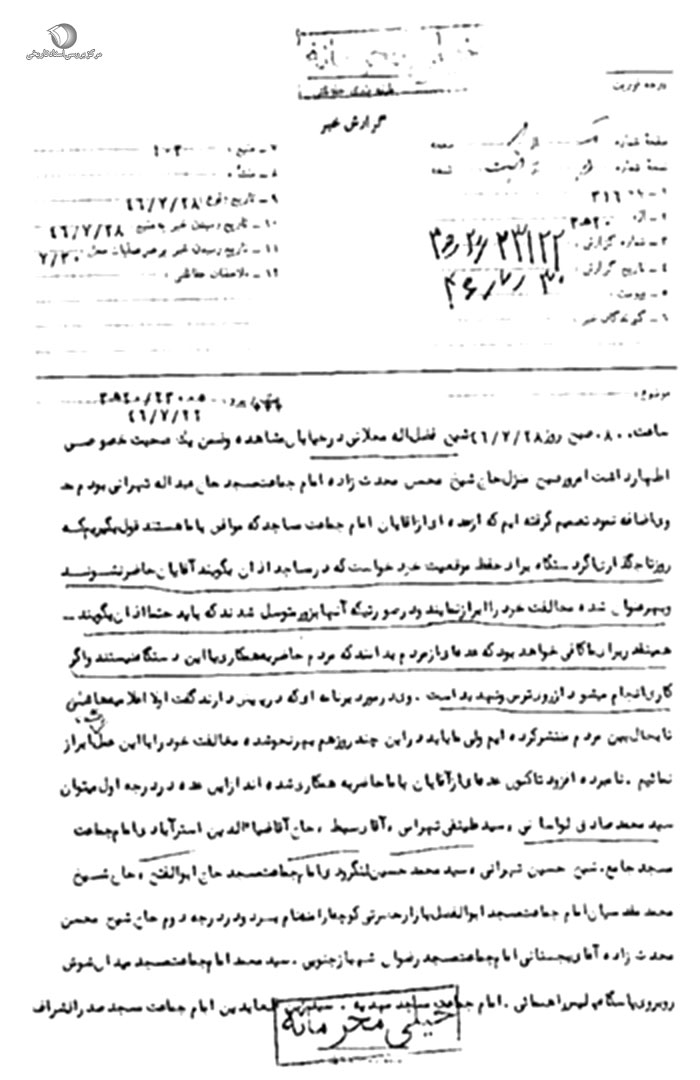 مرکز بررسی اسناد تاریخی
خیلی محرمانه
طبقه بندی حفاظتی
درجه فوریت
گزارش خبر
صفحه شماره از صفحه
نسخه شماره از نسخه
۱ - به ۳۱۶
۲ - از ۲۰ه۲۰
۳ - شماره گزارش :
۴ - تاریخ گزارش :
۵ - پیوست :
۶ - گویندگان خبر :
۷ - منبع :
۸ - منشأ :
۹ - تاریخ وقوع ۴۶/۷/۲۸
۱۰ - تاریخ رسیدن خبر به منبع ۴۶/۷/۲۸
۱۱ - تاریخ رسیدن خبر برهبر عملیات محل ۷/۳۰
۱۲ - ملاحظات حفاظتی :
موضوع :
۴۶/۷/۲۲
ساعت ۸۰۰ صبح روز ۴۶/۷/۲۸ شیخ فضل اله محلاتی در خیابان مشاهده و ضمن یک صحبت خصوصی
اظهار داشت امروز صبح منزل حاج شیخ محسن محدث زاده امام جماعت مسجد حاج عبداله تهرانی بودم
وی اضافه نمود تصمیم گرفته ایم که از عده ای از آقایان امام جماعت مساجد که موافق با ما هستند قول بگیریم که
روز تاجگذاری تا اگر دستگاه برای حفظ موقعیت خود خواست که در مساجد اذان بگویند آقایان حاضر نشوند
و بهر عنوان شده مخالفت خود را ابراز نمایند و در صورتیکه آنها بزور متوسل شدند که باید حتما اذان بگویند -
همینقدر برای ما کافی خواهد بود که عده ای از مردم بدانند که مردم حاضر به همکاری با این دستگاه نیستند و اگر
کاری انجام میشود از زور و ترس و تهدید است . وی در مورد برنامه ای که در پیش دارند گفت اولا اعلامیه هائی
تا بحال بین مردم منتشر کرده ایم ولی ما باید در این چند روز هم بهر نحو شده مخالفت خود را با این عمل ابراز
نمائیم . نامبرده افزود تاکنون عده ای از آقایان با ما حاضر به همکاری شده اند از این عده در درجه اول میتوان
سید محمد صادق لواسانی ، سید علینقی تهرانی ، آقا رسید ، حاج آقا ضیاءالدین استرآبادی امام جماعت
مسجد جامع . شیخ حسین تهرانی ، سید محمد حسین لنگرودی امام جماعت مسجد حاج ابوالفتح ، حاج شیخ
محمد مقدسیان امام جماعت مسجد ابوالفضل بازار حضرتی کوچه را نام برد و در درجه دوم حاج شیخ محسن
محدث زاده آقای بجستانی امام جماعت مسجد رضوان شهباز جنوبی . سید محمد امام جماعت مسجد میدان شوش
روبروی پاسگاه پلیس راهنمائی . امام جماعت مساجد مهدیه . العابدین امام جماعت مسجد صدر اشراف
خیلی محرمانه